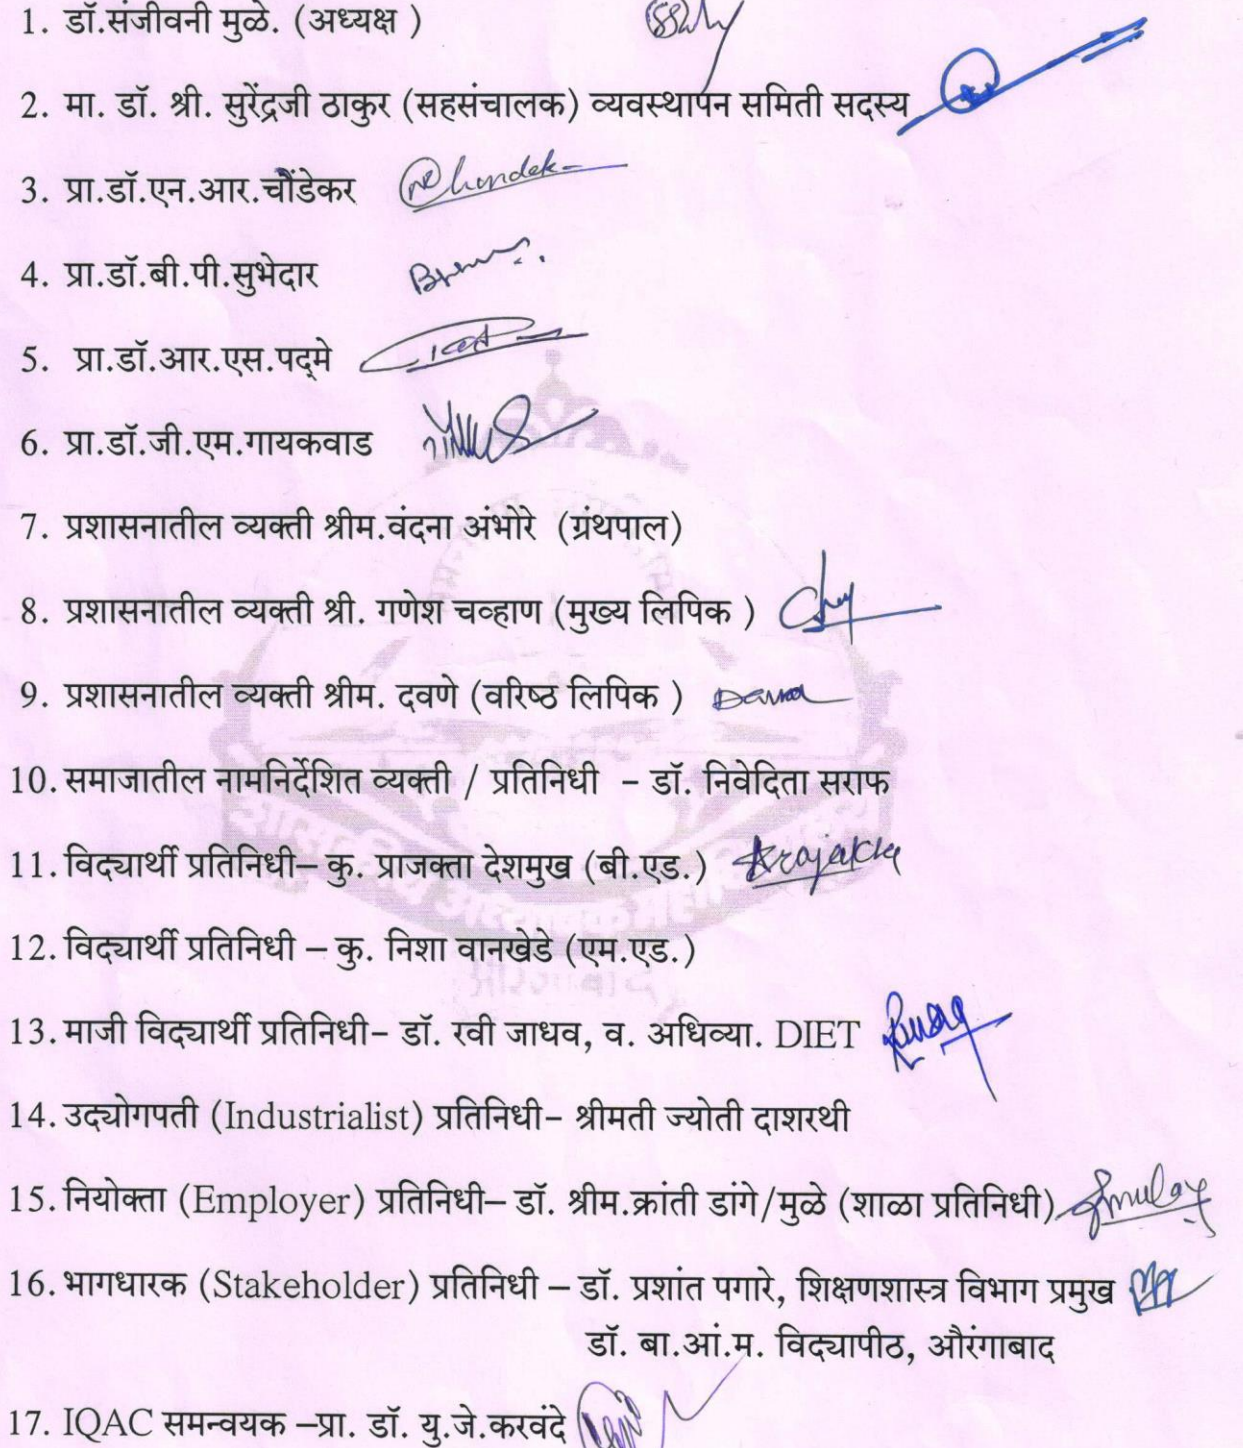 1. डॉ.संजीवनी मुळे. (अध्यक्ष )
2. मा. डॉ. श्री. सुरेंद्रजी ठाकुर (सहसंचालक) व्यवस्थापन समिती सदस्य
3. प्रा.डॉ.एन.आर.चौंडेकर
4. प्रा.डॉ.बी.पी.सुभेदार
5. प्रा.डॉ.आर.एस.पद्मे
6. प्रा.डॉ.जी.एम.गायकवाड
7. प्रशासनातील व्यक्ती श्रीम.वंदना अंभोरे (ग्रंथपाल)
8. प्रशासनातील व्यक्ती श्री. गणेश चव्हाण (मुख्य लिपिक )
9. प्रशासनातील व्यक्ती श्रीम. दवणे (वरिष्ठ लिपिक )
10. समाजातील नामनिर्देशित व्यक्ती / प्रतिनिधी - डॉ. निवेदिता सराफ
11. विद्यार्थी प्रतिनिधी– कु. प्राजक्ता देशमुख (बी.एड.)
12. विद्यार्थी प्रतिनिधी – कु. निशा वानखेडे (एम.एड.)
13. माजी विद्यार्थी प्रतिनिधी- डॉ. रवी जाधव, व. अधिव्या. DIET
14. उद्योगपती (Industrialist) प्रतिनिधी- श्रीमती ज्योती दाशरथी
15. नियोक्ता (Employer) प्रतिनिधी– डॉ. श्रीम.क्रांती डांगे/मुळे (शाळा प्रतिनिधी)
16. भागधारक (Stakeholder) प्रतिनिधी – डॉ. प्रशांत पगारे, शिक्षणशास्त्र विभाग प्रमुख
डॉ. बा.आं.म. विद्यापीठ, औरंगाबाद
17. IQAC समन्वयक –प्रा. डॉ. यु.जे.करवंदे